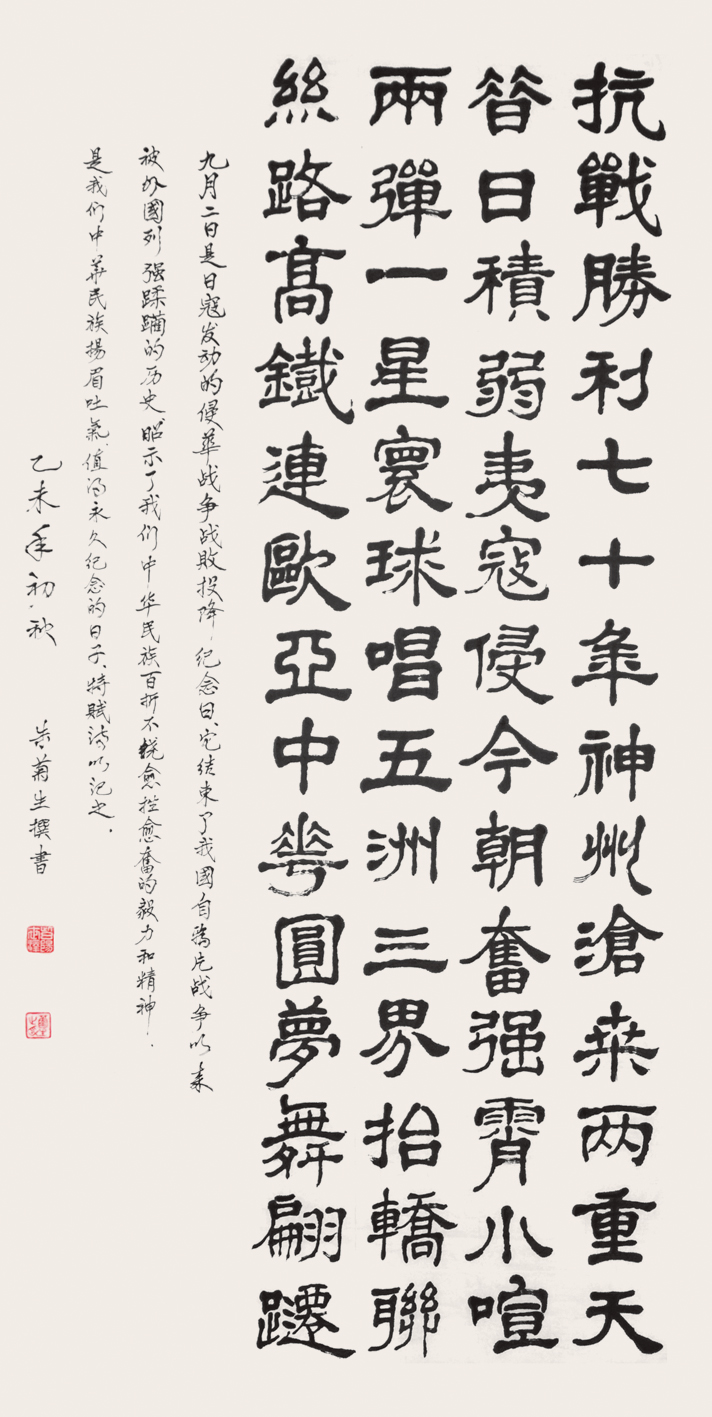 抗戰勝利七十年神州滄桒两重天
昝日積弱夷寇侵今朝奮强霄小喧
兩彈一星寰球唱五洲三界抬轎聯
絲路髙鐵連歐亞中華圓夢舞翩躚
九月二日是日寇发动的侵華战争战败投降纪念日、它结束了我國自鴉片战争以来
被外國列强蹂躏的历史、昭示了我们中华民族百折不挠愈挫愈奮的毅力和精神！
是我们中華民族揚眉吐氣、值得永久纪念的日子、特赋诗以记之.
乙未年初秋 菊生撰書